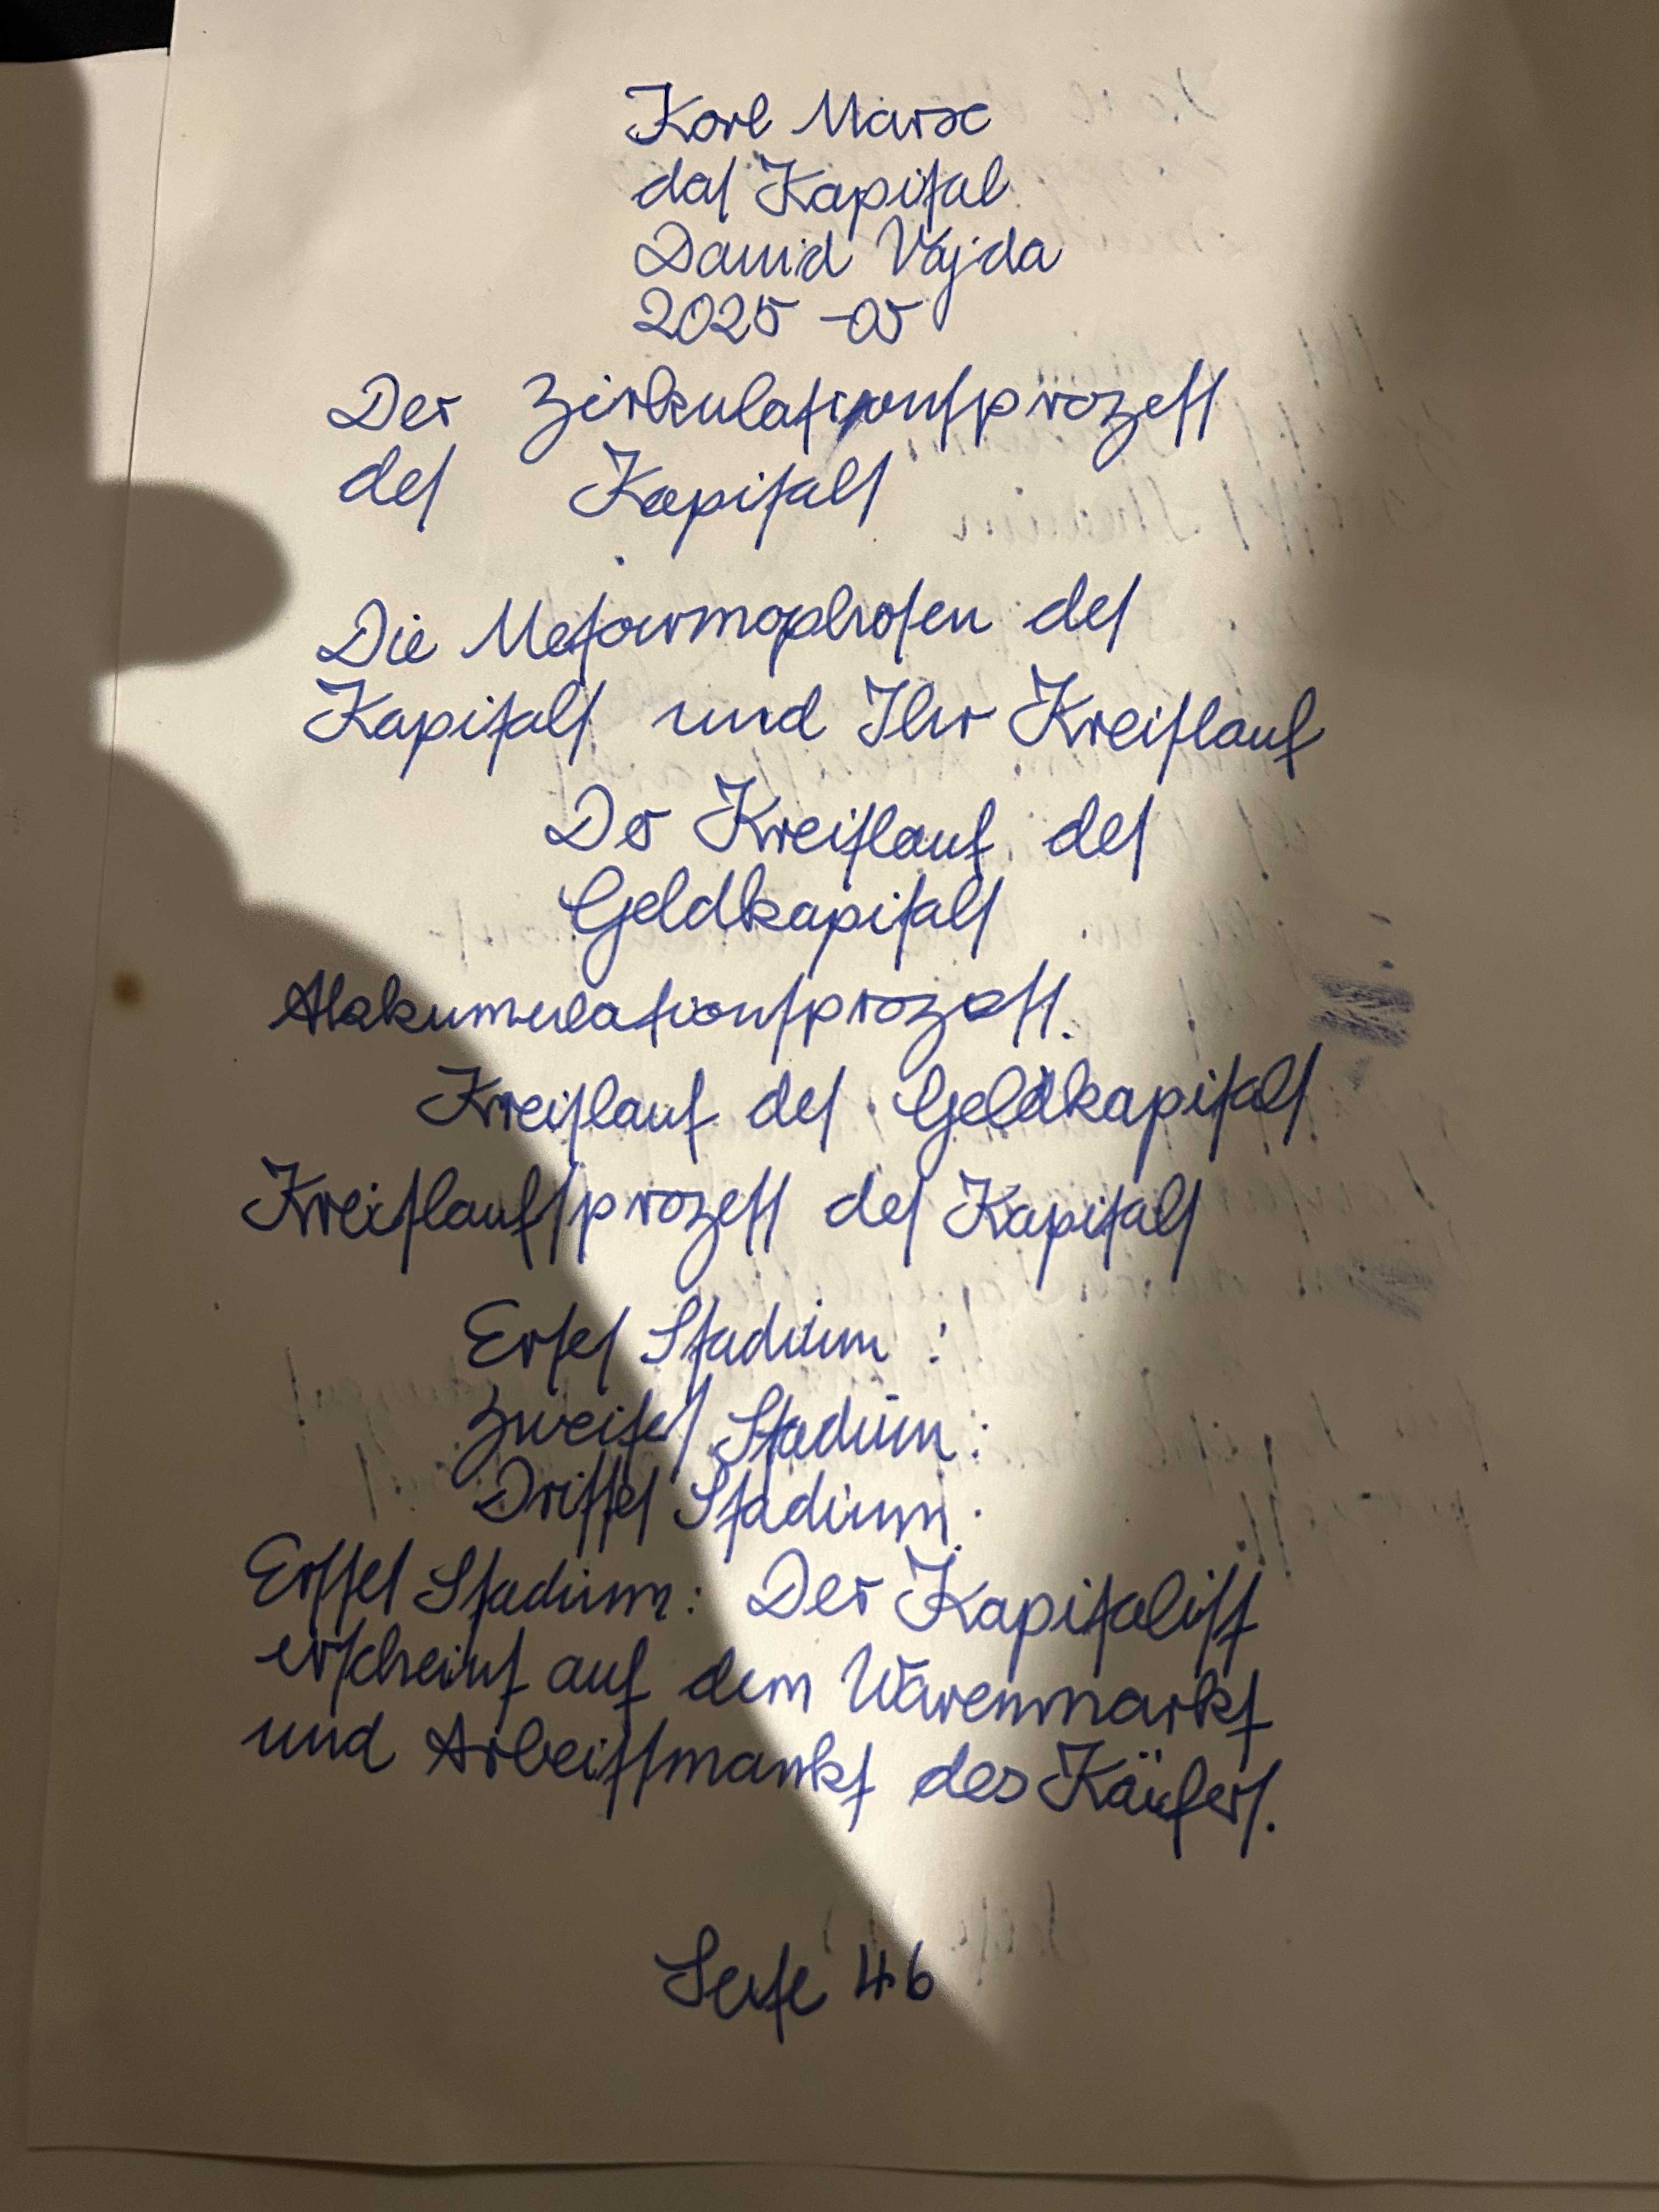 Karl Marx
das Kapital
David Vajda
2025-05
Der Zirkulationsprozess
des Kapitals
Die Metaormophosen des
Kapitals und Ihr Kreislauf
De Kreislauf des
Geldkapitals
Akkumulationsprozess.
Kreislauf des Geldkapitals
Kreislaufsprozess des Kapitals
Erstes Stadium:
Zweites Stadium:
Drittes Stadium:
Erstes Stadium: Der Kapitalist
erscheint auf dem Warenmarkt
und Arbeitsmarkt des Käufers.
Seite 46